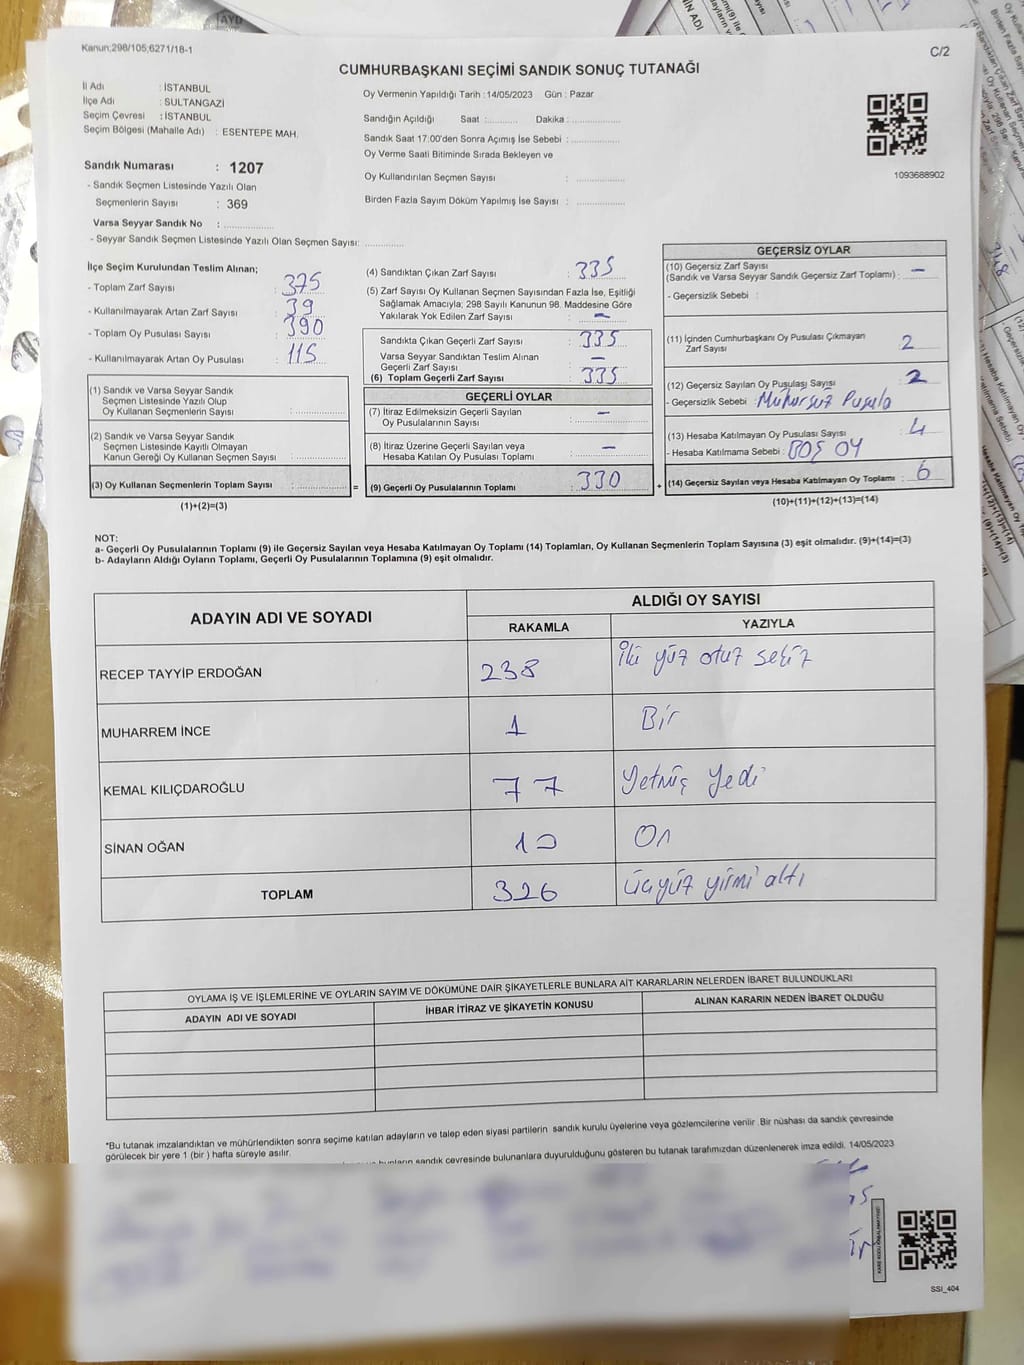 Kanun;298/105;6271/18-1
C/2
CUMHURBAŞKANI SEÇİMİ SANDIK SONUÇ TUTANAĞI
İl Adı : İSTANBUL
İlçe Adı : SULTANGAZİ
Seçim Çevresi : İSTANBUL
Seçim Bölgesi (Mahalle Adı) : ESENTEPE MAH.
Sandık Numarası : 1207
- Sandık Seçmen Listesinde Yazılı Olan
Seçmenlerin Sayısı : 369
Varsa Seyyar Sandık No :
- Seyyar Sandık Seçmen Listesinde Yazılı Olan Seçmen Sayısı:
Oy Vermenin Yapıldığı Tarih : 14/05/2023 Gün : Pazar
Sandığın Açıldığı Saat : Dakika :
Sandık Saat 17:00'den Sonra Açımış İse Sebebi :
Oy Verme Saati Bitiminde Sırada Bekleyen ve
Oy Kullandırılan Seçmen Sayısı :
Birden Fazla Sayım Döküm Yapılmış İse Sayısı :
1093688902
İlçe Seçim Kurulundan Teslim Alınan;
- Toplam Zarf Sayısı : 375
- Kullanılmayarak Artan Zarf Sayısı : 39
- Toplam Oy Pusulası Sayısı : 390
- Kullanılmayarak Artan Oy Pusulası : 115
(1) Sandık ve Varsa Seyyar Sandık
Seçmen Listesinde Yazılı Olup
Oy Kullanan Seçmenlerin Sayısı :
(2) Sandık ve Varsa Seyyar Sandık
Seçmen Listesinde Kayıtlı Olmayan
Kanun Gereği Oy Kullanan Seçmen Sayısı :
(3) Oy Kullanan Seçmenlerin Toplam Sayısı :
(1)+(2)=(3)
(4) Sandıktan Çıkan Zarf Sayısı : 335
(5) Zarf Sayısı Oy Kullanan Seçmen Sayısından Fazla İse, Eşitliği
Sağlamak Amacıyla; 298 Sayılı Kanunun 98. Maddesine Göre
Yakılarak Yok Edilen Zarf Sayısı : —
Sandıkta Çıkan Geçerli Zarf Sayısı : 335
Varsa Seyyar Sandıktan Teslim Alınan
Geçerli Zarf Sayısı : —
(6) Toplam Geçerli Zarf Sayısı : 335
GEÇERLİ OYLAR
(7) İtiraz Edilmeksizin Geçerli Sayılan
Oy Pusulalarının Sayısı : —
(8) İtiraz Üzerine Geçerli Sayılan veya
Hesaba Katılan Oy Pusulası Toplamı : —
= (9) Geçerli Oy Pusulalarının Toplamı : 330
GEÇERSİZ OYLAR
(10) Geçersiz Zarf Sayısı
(Sandık ve Varsa Seyyar Sandık Geçersiz Zarf Toplamı) : —
- Geçersizlik Sebebi :
(11) İçinden Cumhurbaşkanı Oy Pusulası Çıkmayan
Zarf Sayısı : 2
(12) Geçersiz Sayılan Oy Pusulası Sayısı : 2
- Geçersizlik Sebebi : Mühürsüz Pusula
(13) Hesaba Katılmayan Oy Pusulası Sayısı : 4
- Hesaba Katılmama Sebebi : BOŞ OY
+ (14) Geçersiz Sayılan veya Hesaba Katılmayan Oy Toplamı : 6
(10)+(11)+(12)+(13)=(14)
NOT:
a- Geçerli Oy Pusulalarının Toplamı (9) ile Geçersiz Sayılan veya Hesaba Katılmayan Oy Toplamı (14) Toplamları, Oy Kullanan Seçmenlerin Toplam Sayısına (3) eşit olmalıdır. (9)+(14)=(3)
b- Adayların Aldığı Oyların Toplamı, Geçerli Oy Pusulalarının Toplamına (9) eşit olmalıdır.
ADAYIN ADI VE SOYADI
ALDIĞI OY SAYISI
RAKAMLA YAZIYLA
RECEP TAYYİP ERDOĞAN 238 İki yüz otuz sekiz
MUHARREM İNCE 1 Bir
KEMAL KILIÇDAROĞLU 77 Yetmiş Yedi
SİNAN OĞAN 10 On
TOPLAM 326 üçyüz yirmi altı
OYLAMA İŞ VE İŞLEMLERİNE VE OYLARIN SAYIM VE DÖKÜMÜNE DAİR ŞİKAYETLERLE BUNLARA AİT KARARLARIN NELERDEN İBARET BULUNDUKLARI
ADAYIN ADI VE SOYADI İHBAR İTİRAZ VE ŞİKAYETİN KONUSU ALINAN KARARIN NEDEN İBARET OLDUĞU
*Bu tutanak imzalandıktan ve mühürlendikten sonra seçime katılan adayların ve talep eden siyasi partilerin sandık kurulu üyelerine veya gözlemcilerine verilir. Bir nüshası da sandık çevresinde
görülecek bir yere 1 (bir ) hafta süreyle asılır.
sandık çevresinde bulunanlara duyurulduğunu gösteren bu tutanak tarafımızdan düzenlenerek imza edildi. 14/05/2023
SSI_404